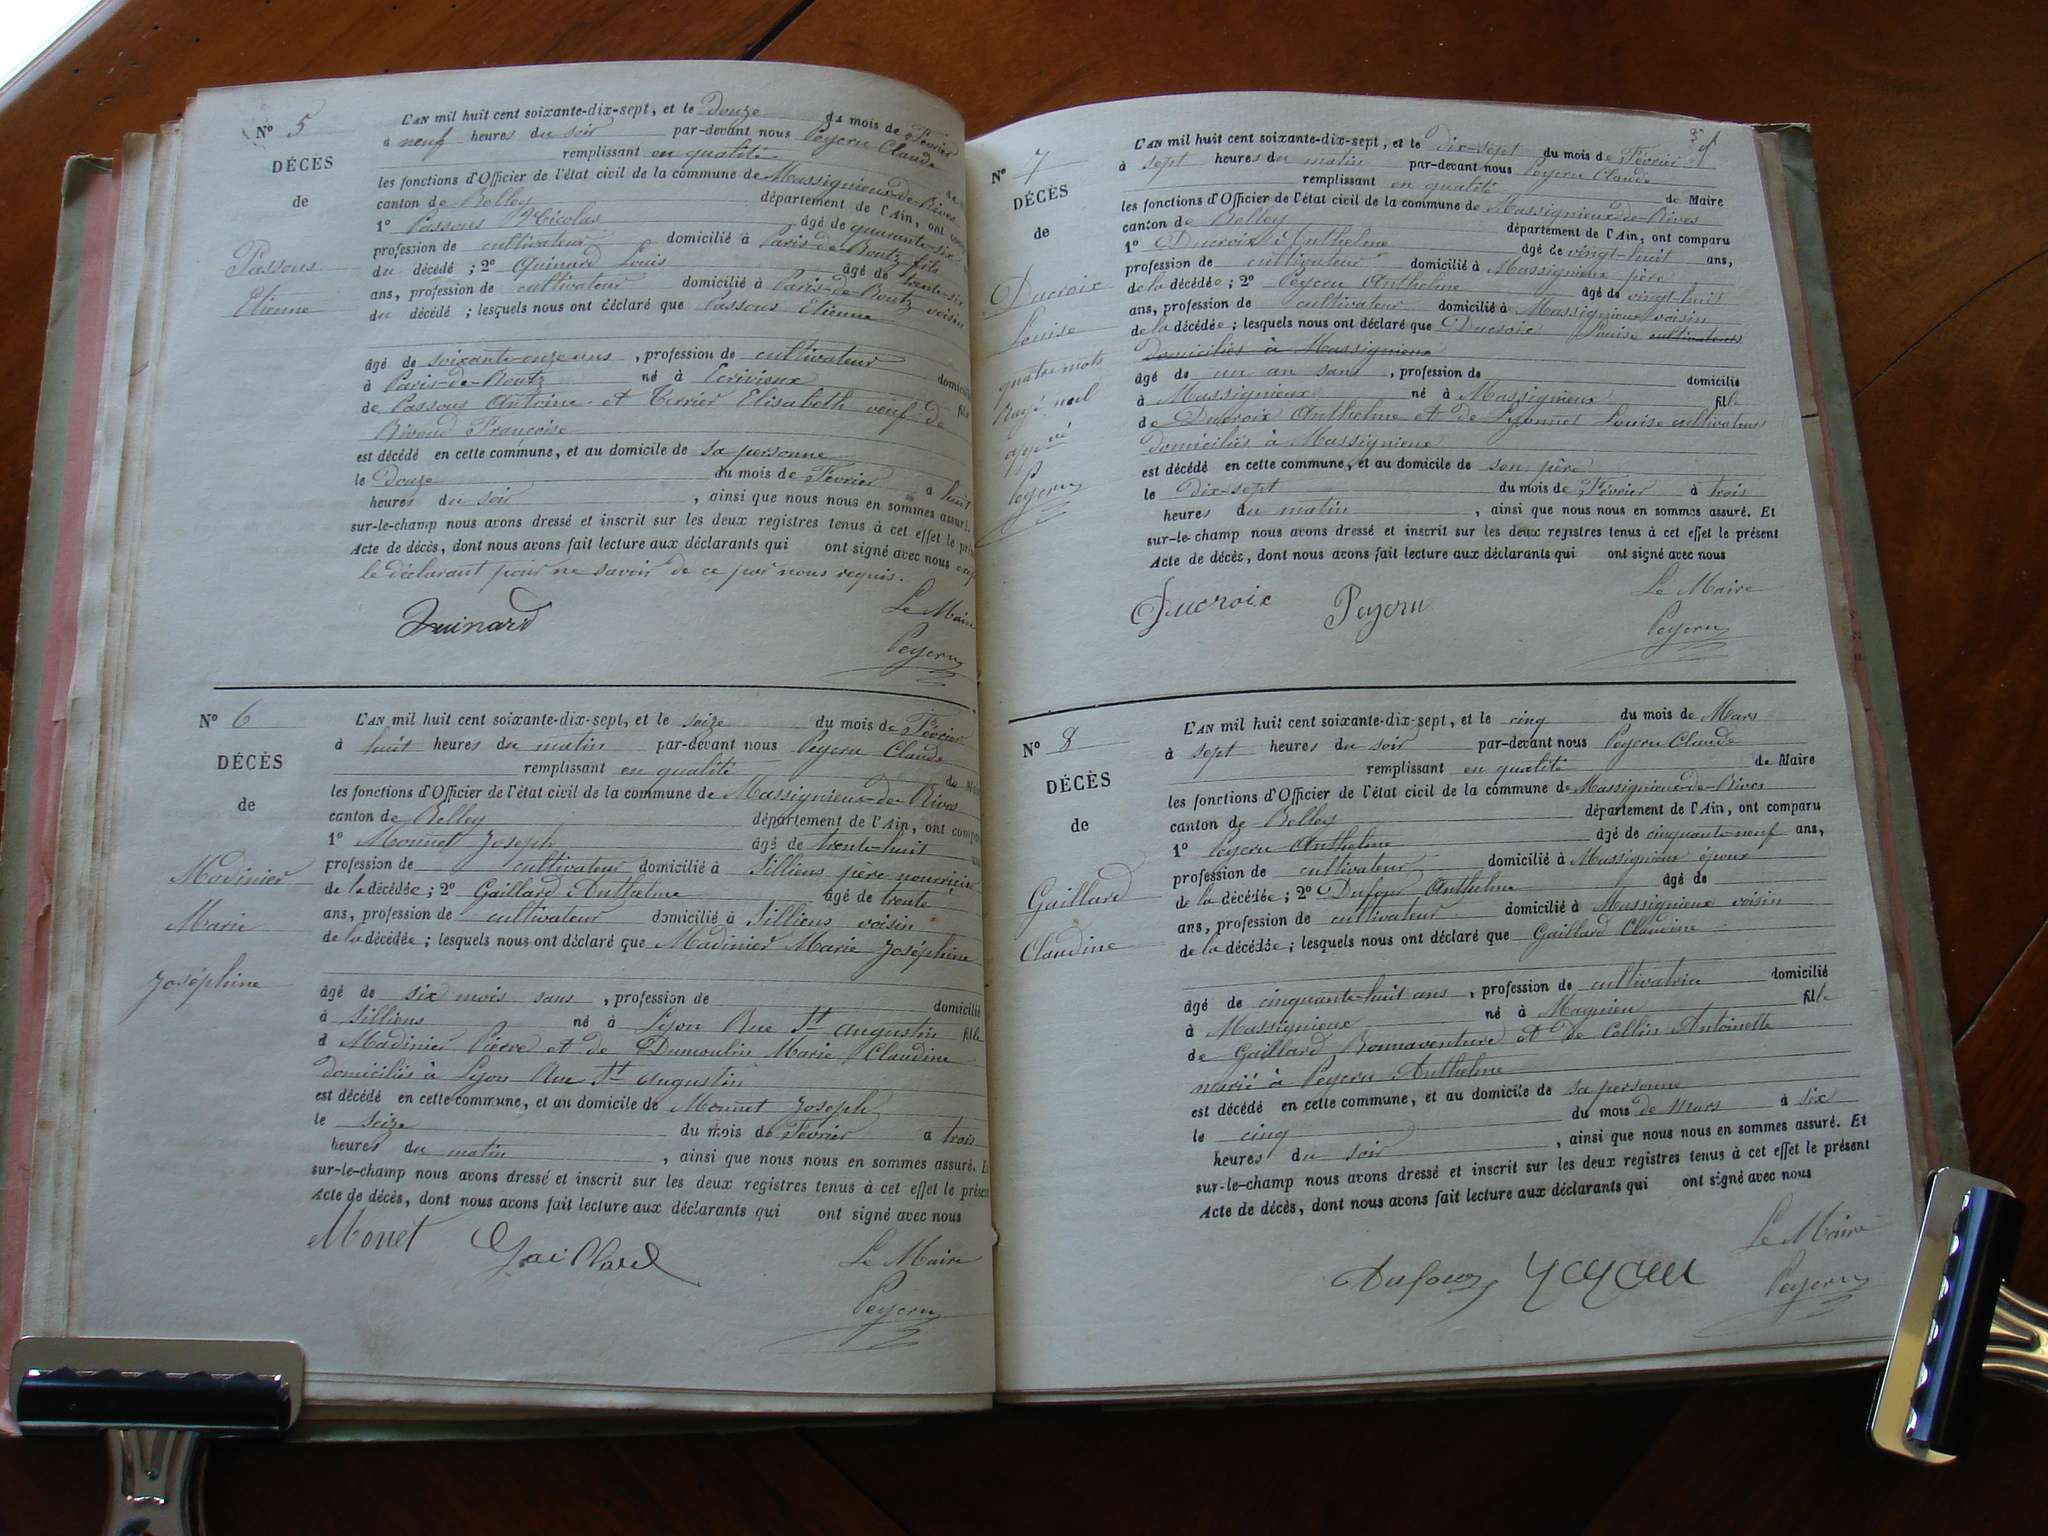 N° 5
DÉCÈS
de
Passous
Etienne
L'AN mil huit cent soixante-dix-sept, et le douze du mois de Février
à neuf heures du soir par-devant nous Peyeru Claude
remplissant en qualité
les fonctions d'Officier de l'état civil de la commune de Massignieux-de-Rives
canton de Belley département de l'Ain, ont
1° Passous Nicolas âgé de quarante-six
profession de cultivateur domicilié à Paris-de-Boutz fils
du décédé ; 2° Quinard Louis âgé de trente-six
ans, profession de cultivateur domicilié à Paris-de-Boutz voisin
du décédé ; lesquels nous ont déclaré que Passous Etienne
âgé de soixante-onze ans , profession de cultivateur
à Paris-de-Boutz né à Ecrivieux fils
de Passous Antoine et Terrier Elisabeth veuf de
Rivoud Françoise
est décédé en cette commune, et au domicile de sa personne
le Douze du mois de Février à huit
heures du soir , ainsi que nous nous en sommes assuré.
sur-le-champ nous avons dressé et inscrit sur les deux registres tenus à cet effet le
Acte de décès, dont nous avons fait lecture aux déclarants qui ont signé avec nous
le déclarant pour ne savoir de ce par nous requis.
Quinard
Le Maire
Peyeru
N° 6
DÉCÈS
de
Madinier
Marie
Joséphine
L'AN mil huit cent soixante-dix-sept, et le seize du mois de Février
à huit heures du matin par-devant nous Peyeru Claude
remplissant en qualité de
les fonctions d'Officier de l'état civil de la commune de Massignieux-de-Rives
canton de Belley département de l'Ain, ont
1° Monnet Joseph âgé de trente-huit
profession de cultivateur domicilié à Silliens père nourricier
de la décédée ; 2° Gaillard Anthelme âgé de trente
ans, profession de cultivateur domicilié à Silliens voisin
de la décédée ; lesquels nous ont déclaré que Madinier Marie Joséphine
âgé de six mois sans , profession de domicilié
à Silliens né à Lyon Rue St augustin fille
d Madinier Pierre et de Dumoulin Marie Claudine
domiciliés à Lyon Rue St augustin
est décédé en cette commune, et au domicile de Monnet Joseph
le seize du mois de Février à trois
heures du matin , ainsi que nous nous en sommes assuré.
sur-le-champ nous avons dressé et inscrit sur les deux registres tenus à cet effet le
Acte de décès, dont nous avons fait lecture aux déclarants qui ont signé avec nous
Monet Gaillard
Le Maire
Peyeru
N° 7
DÉCÈS
de
Ducroix
Louise
quatre mots
Rayé nul
Peyeru
L'AN mil huit cent soixante-dix-sept, et le Dix-sept du mois de Février
à sept heures du matin par-devant nous Peyeru Claude
remplissant en qualité de Maire
les fonctions d'Officier de l'état civil de la commune de Massignieux-de-Rives
canton de Belley département de l'Ain, ont comparu
1° Ducroix Anthelme âgé de vingt-huit ans,
profession de cultivateur domicilié à Massignieux père
de la décédée ; 2° Peyeru Anthelme âgé de vingt-huit
ans, profession de cultivateur domicilié à Massignieux voisin
de la décédée ; lesquels nous ont déclaré que Ducroix Louise cultivateurs
domiciliés à Massignieux
âgé de un an sans , profession de domicilié
à Massignieux né à Massignieux fille
de Ducroix Anthelme et de Lyonnet Louise cultivateurs
domiciliés à Massignieux
est décédé en cette commune, et au domicile de son père
le Dix-sept du mois de Février à trois
heures du matin , ainsi que nous nous en sommes assuré. Et
sur-le-champ nous avons dressé et inscrit sur les deux registres tenus à cet effet le présent
Acte de décès, dont nous avons fait lecture aux déclarants qui ont signé avec nous
Ducroix Peyeru
Le Maire
Peyeru
N° 8
DÉCÈS
de
Gaillard
Claudine
L'AN mil huit cent soixante-dix-sept, et le cinq du mois de Mars
à sept heures du soir par-devant nous Peyeru Claude
remplissant en qualité de Maire
les fonctions d'Officier de l'état civil de la commune de Massignieux-de-Rives
canton de Belley département de l'Ain, ont comparu
1° Peyeru Anthelme âgé de cinquante-neuf ans,
profession de cultivateur domicilié à Massignieux époux
de la décédée ; 2° Dufour Anthelme âgé de
ans, profession de cultivateur domicilié à Massignieux voisin
de la décédée ; lesquels nous ont déclaré que Gaillard Claudine
âgé de cinquante-huit ans , profession de cultivatrice domicilié
à Massignieux né à Magnieu fille
de Gaillard Bonnaventure et de Collin Antoinette
marié à Peyeru Anthelme
est décédé en cette commune, et au domicile de sa personne
le cinq du mois de Mars à six
heures du soir , ainsi que nous nous en sommes assuré. Et
sur-le-champ nous avons dressé et inscrit sur les deux registres tenus à cet effet le présent
Acte de décès, dont nous avons fait lecture aux déclarants qui ont signé avec nous
Dufour
Le Maire
Peyeru